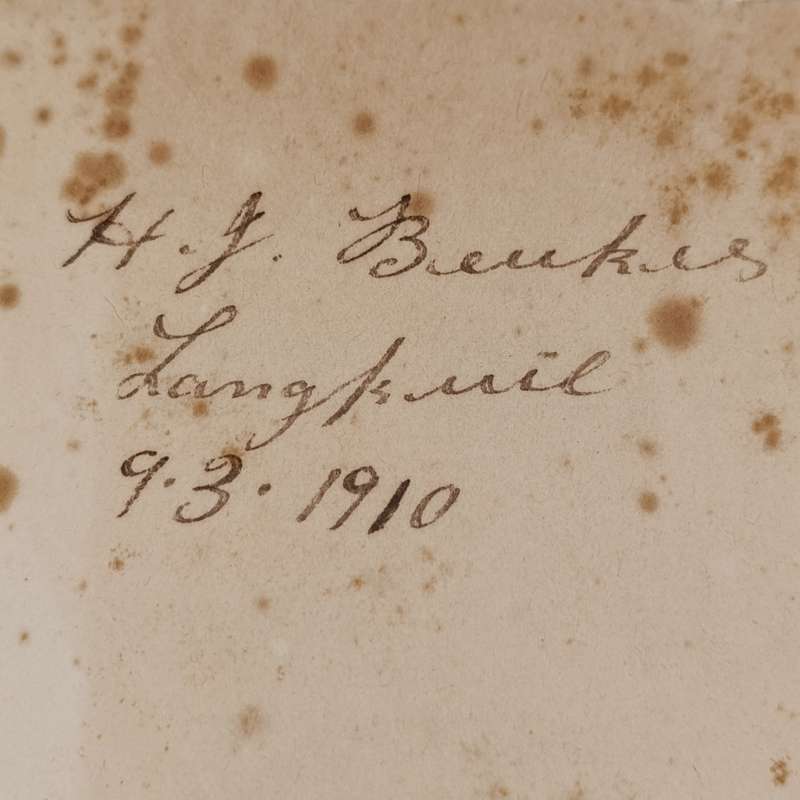 H. J. Beukes
Langkuil
9.3.1910